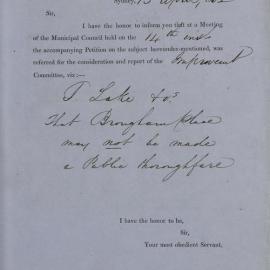 Sydney, 15 April
Sir,
I have the honor to inform you that at a Meeting
of the Municipal Council held on the 14th inst
the accompanying Petition on the subject hereunder-mentioned, was
referred for the consideration and report of the Improvemt
Committee, viz:—
T. Lake & os
That Brougham Place
may not be made
a Public thoroughfare
I have the honor to be,
Sir,
Your most obedient Servant,